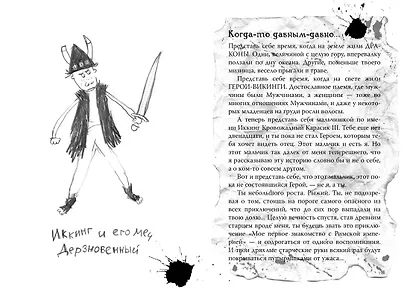 Иккинг и его меч
Дерзновенный
Когда-то давным-давно...
Представь себе время, когда на земле жили ДРА-
КОНЫ. Одни, величиной с целую гору, вперевалку
ползали по дну океана. Другие, поменьше твоего
мизинца, весело прыгали в траве.
Представь себе время, когда на свете жили
ГЕРОИ-ВИКИНГИ. Достославное племя, где муж-
чины были Мужчинами, а женщины — тоже во
многих отношениях Мужчинами, и даже у некото-
рых младенцев на груди росли волосы.
А теперь представь себя мальчишкой по име-
ни Иккинг Кровожадный Карасик III. Тебе еще нет
двенадцати, и ты пока не стал Героем, которым бы
тебя хотел видеть отец. Этот мальчик есть и я. Но
этот мальчик так далек от меня теперешнего, что
я рассказываю эту историю словно бы и не о себе,
а о ком-то совсем другом.
Вот и представь себе, что этот мальчик, этот по-
ка не состоявшийся Герой, — не я, а ты.
Ты небольшого роста. Рыжий. Ты не подозре-
вая о том, стоишь на пороге самого опасного из
всех приключений, что до сих пор выпадали на
твою долю... Целую вечность спустя, став древним
старцем вроде меня, ты будешь звать это приклю-
чение «Мое первое знакомство с Римской импе-
рией» — и содрогаться от одного воспоминания.
И твои дряхлые старческие руки всякий раз будут
покрываться пупырышками от ужаса...